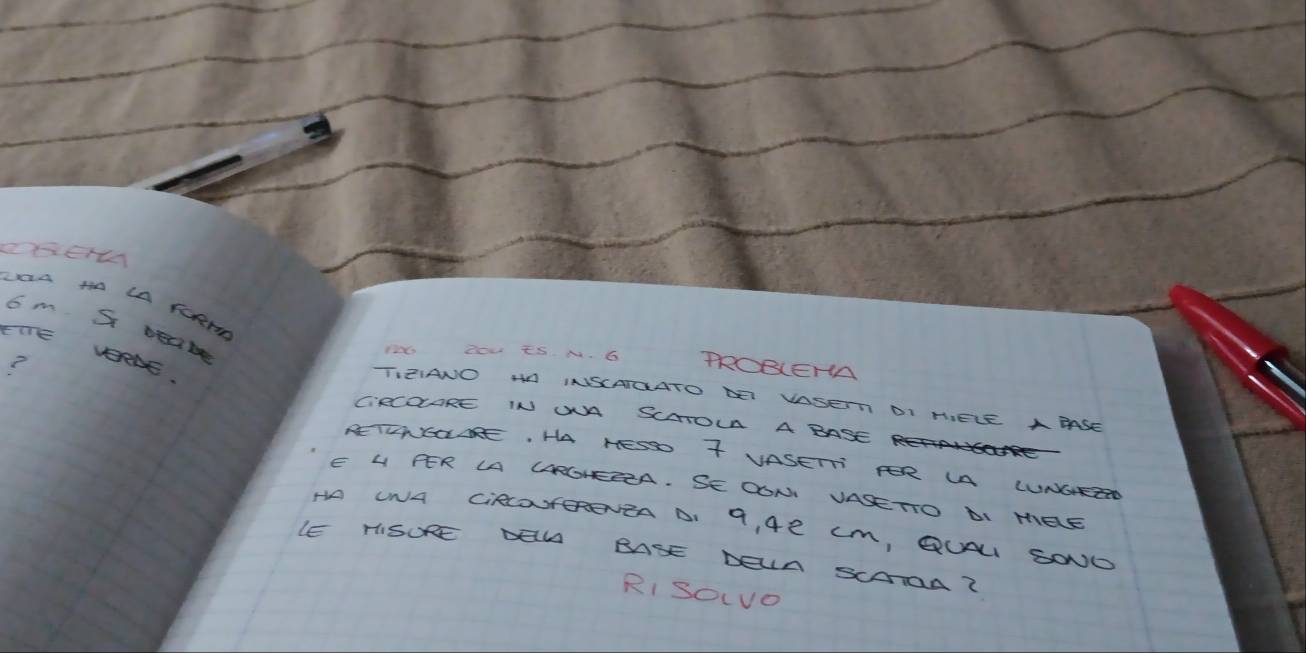 HA LA FORMA
6 m. SI DECIDE
VERDE.
?
ES. N. 6 PROBLEMA
TIZIANO HA INSCATOLATO DEI VASETTI DI MIELE A BASE
CIRCOLARE IN UNA SCATOLA A BASE RETTANGOLARE
RETTANGOLARE. HA MESSO 7 VASETTI PER LA LUNGHEZZA
E 4 PER LA LARGHEZZA. SE OGNI VASETTO DI MIELE
HA UNA CIRCONFERENZA DI 9,42 cm, QUALI SONO
LE MISURE DELLA BASE DELLA SCATOLA?
RISOLVO